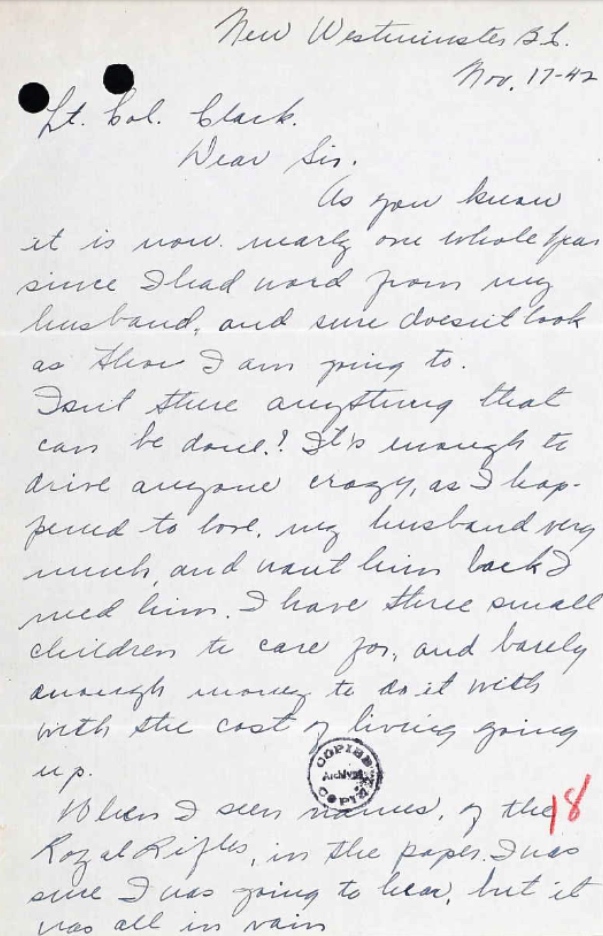 New Westminster B.C.
Nov. 17-42
Lt. Col. Clark.
Dear Sir.
As you know
it is now nearly one whole year
since I had word from my
husband, and sure doesn't look
as thou I am going to.
Isn't there anything that
can be done.! It's enough to
drive anyone crazy, as I hap-
pened to love, my husband very
much, and want him back I
need him. I have three small
children to care for, and barely
enough money to do it with
with the cost of living going
up.
COPIED
Archives
COPIÉE
When I seen names, of the
18
Royal Rifles, in the paper. I was
sure I was going to hear, but it
was all in vain